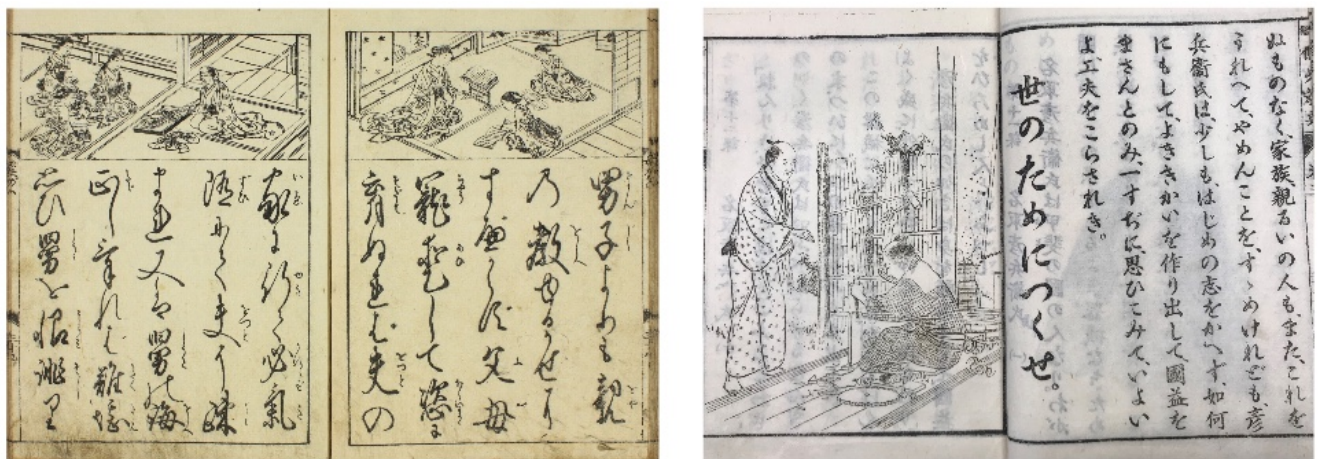 男子よりも親
乃教ゆるかせに
すべからず父母
寵愛して恣に
育ぬれば夫の
家に行て必氣
随にて夫に疎
まれ又は舅の誨
正しければ難堪
思ひ舅を恨誹り
ぬものなく、家族、親るいの人もまた、これを
うれへて、やめんことを、すゝめけれども、彦
兵衞氏は、少しも、はじめの志をかへず、如何
にもして、よききかいを作り出して、國益を
まさんとのみ、一すぢに思ひこみて、いよい
よ、工夫をこらされき。
世のためにつくせ。